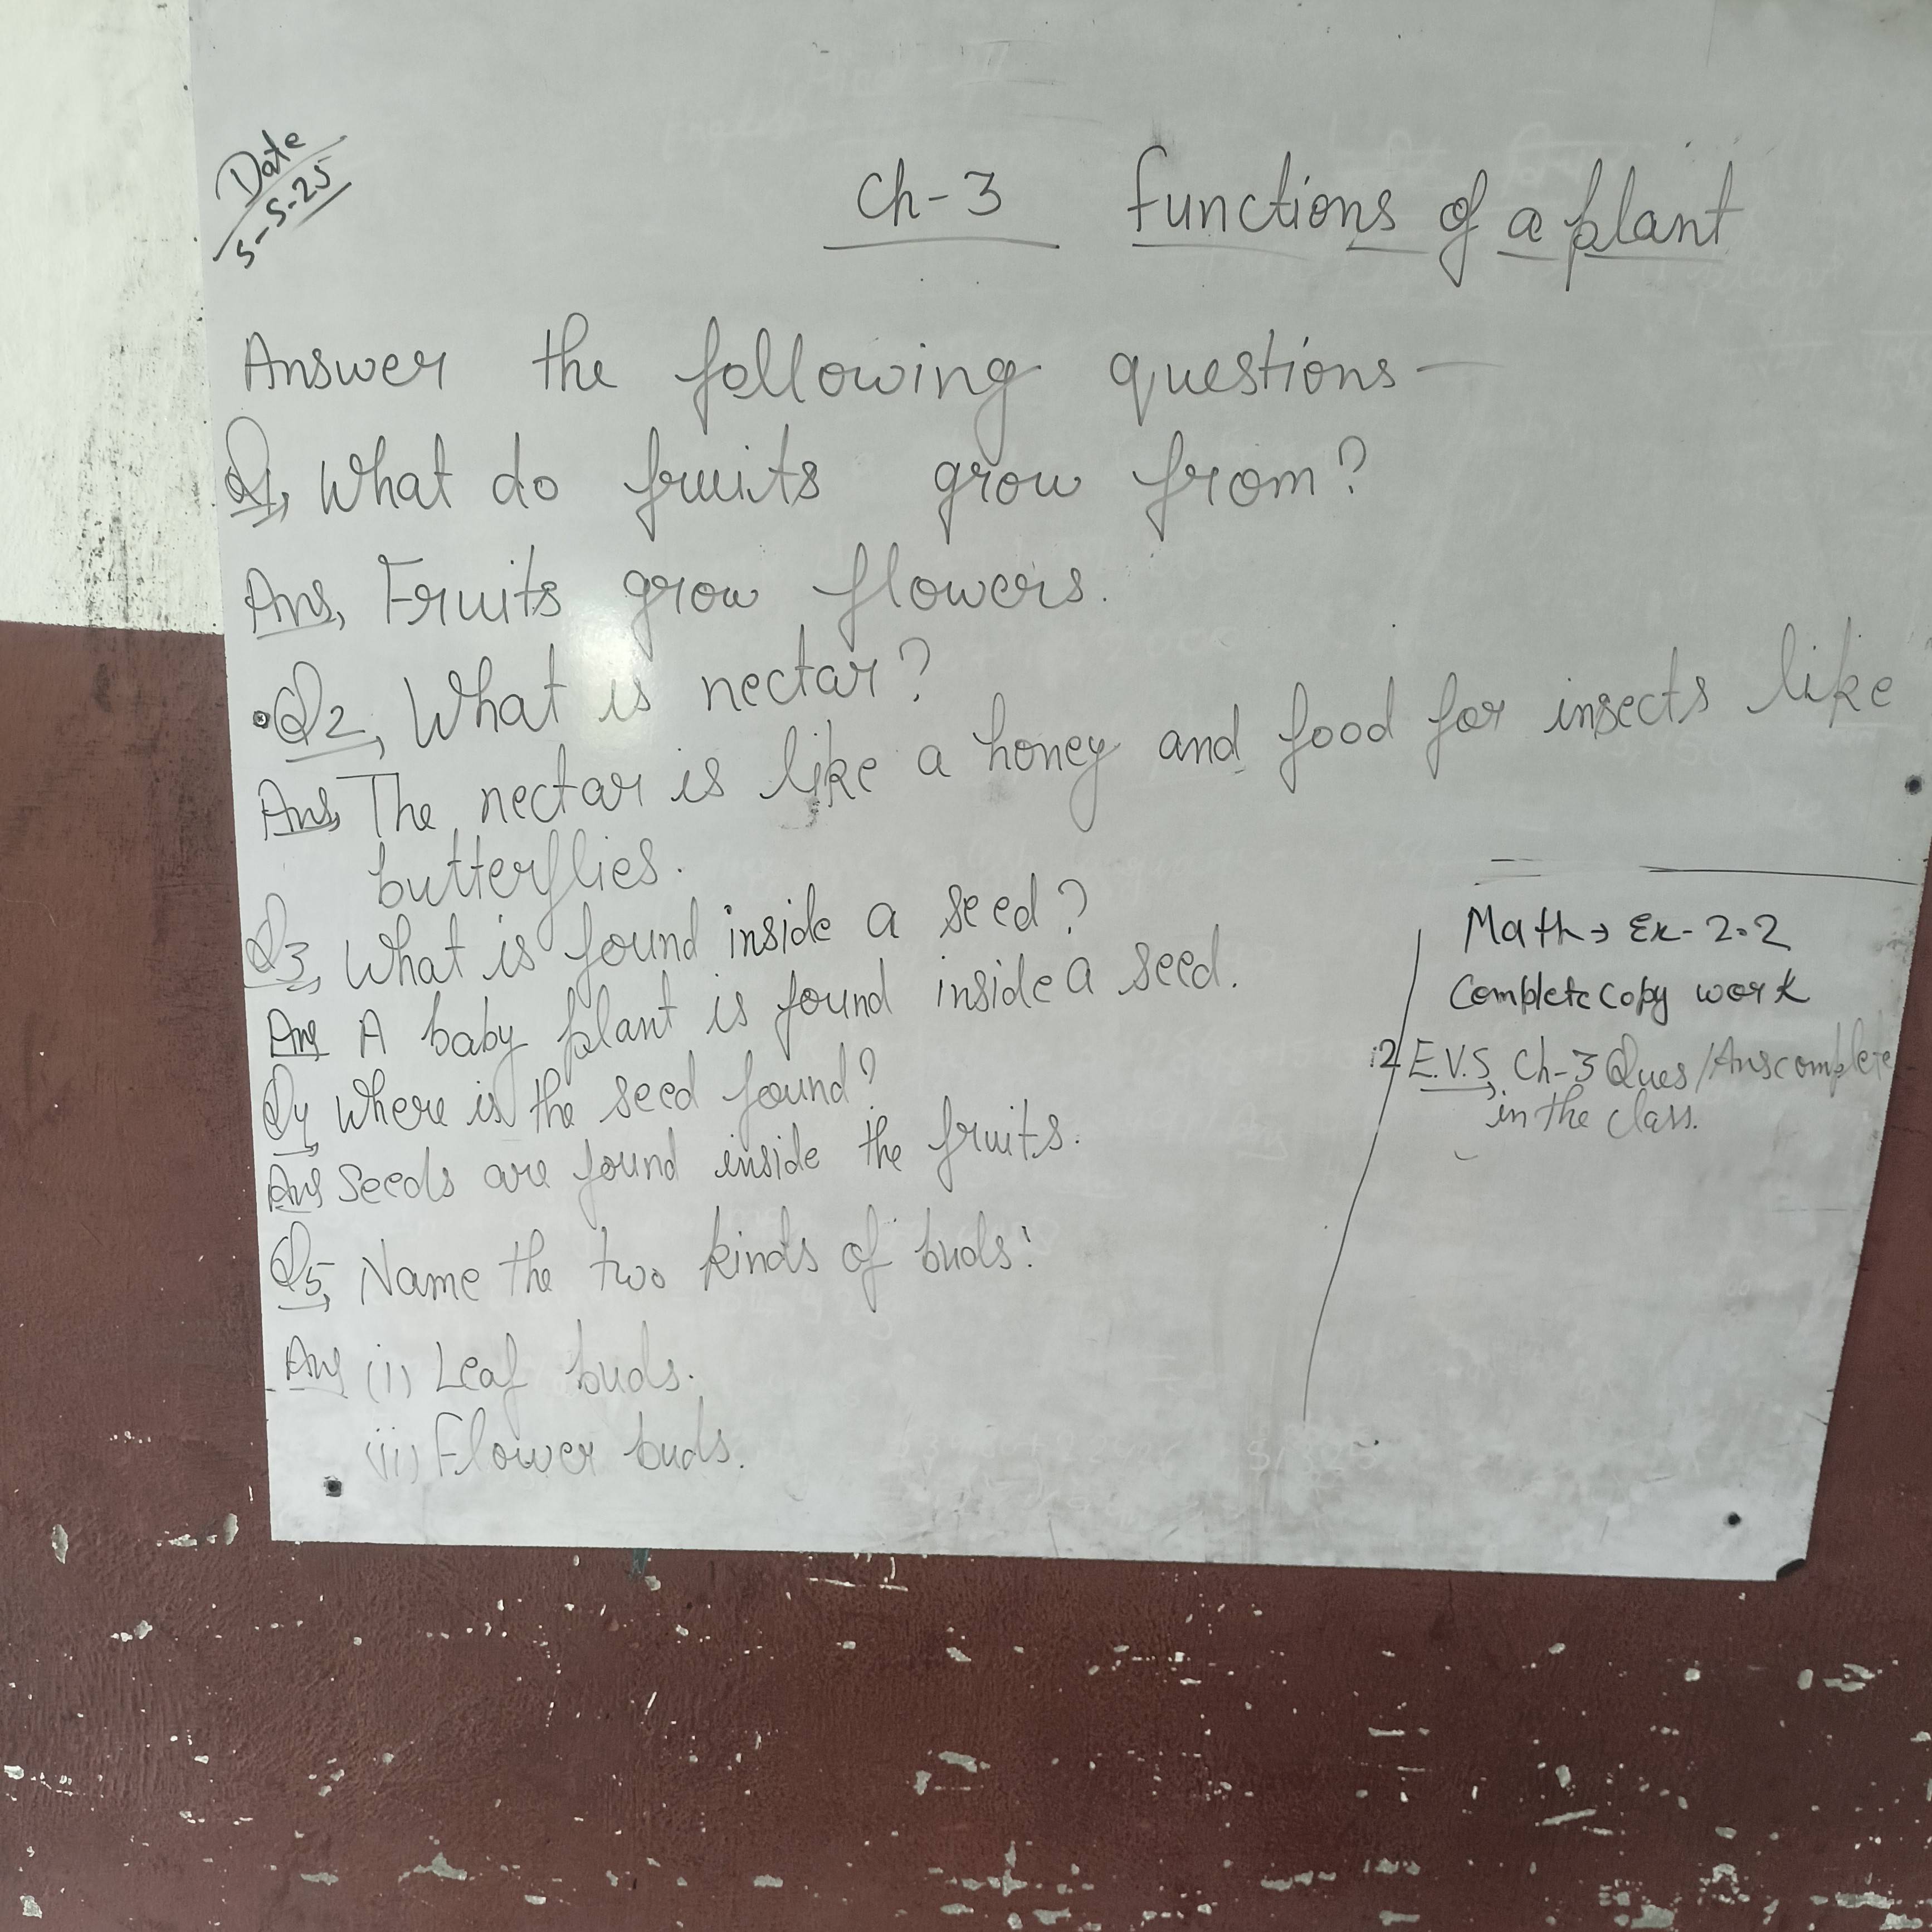 Date
5-5-25
Ch-3 functions of a plant
Answer the following questions-
Q1, What do fruits grow from?
Ans, Fruits grow flowers.
Q2, What is nectar?
Ans, The nectar is like a honey and food for insects like
butterflies.
Q3, What is found inside a seed?
Ans A baby plant is found inside a seed.
Q4, Where is the seed found?
Ans Seeds are found inside the fruits.
Q5, Name the two kinds of buds:
Ans (i) Leaf buds.
(ii) Flower buds.
Math → Ex- 2.2
Complete copy work
2 E.V.S, Ch-3 Ques/Ans complete
in the class.